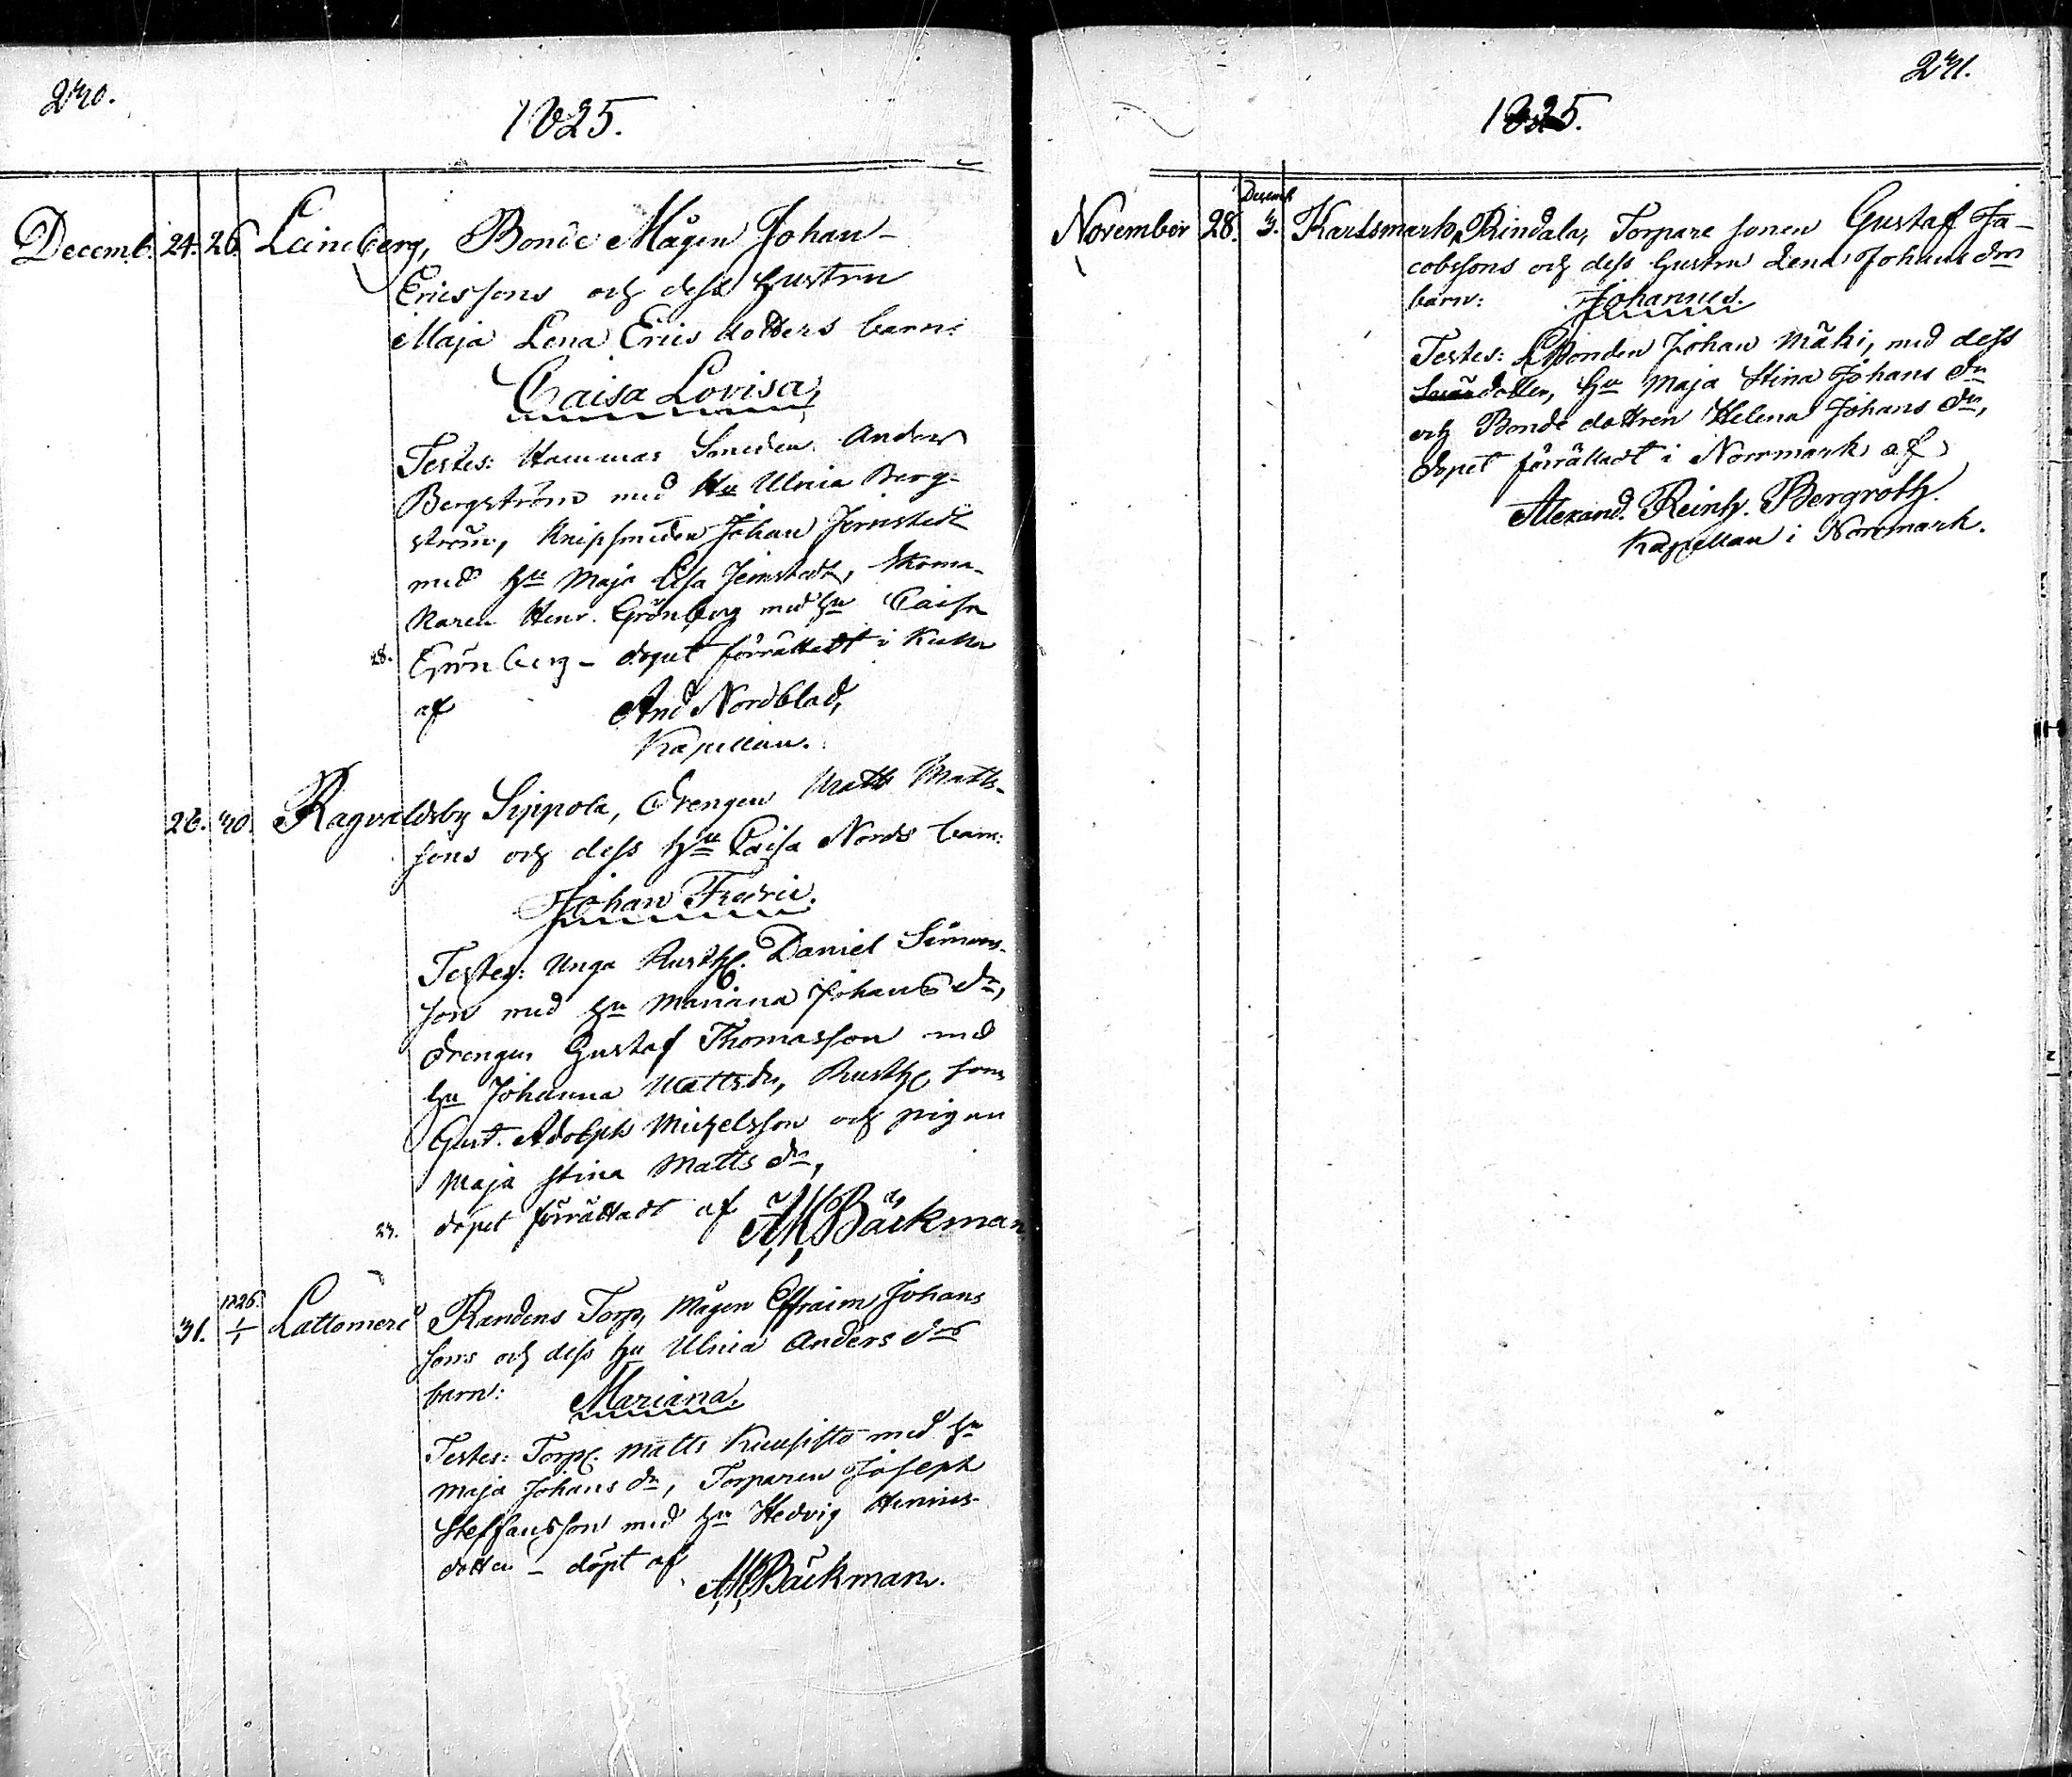 230.
1825.
Decemb. 24. 26. Leineberg, Bonde Mågen Johan
Ericssons och dess hustru
Maja Lena Ericsdotters barn:
Caisa Lovisa,
Testes: Hammar Smeden Anders
Bergström med Hu Ulrica Berg-
ström, Knipsmeden Johan Jernstedt
med hu Maja Lisa Jernstedt,
Henr. Grönberg med hu Caisa
28. Grönberg - dopet förrättadt i
af And Nordblad,
Kapellan.
26. 30. Ragvaldsby Sippola, Drengen Matts Matts-
sons och dess hu Caisa Nords barn:
Johan Fredric.
Testes: Unga Rusth. Daniel Simons-
son med hu Mariana Johans dr,
drengen Gustaf Thomasson med
hu Johanna Mattsdr, Rusth. son
Gust. Adolph Michelsson och pigan
Maja Stina Matts dr,
dopet förrättadt af AHBäckman
31. 1826. 1/1 Lattomeri Randens Torp, Mågen Effraim Johans
sons och dess hu Ulrica Anders drs
barn: Mariana,
Testes: Torp. Matts Kuusisto med hu
Maja Johans dr, Torparen Joseph
Steffansson med hu Hedvig Henrics-
dotter - döpt af AHBäckman.
231.
1825.
November 28. Decemb. 3. Karlsmark, Rindala, Torpare sonen Gustaf Ja-
cobssons och dess hustru Lena Johans drs
barn: Johannes.
Testes: Bonden Johan Mäki, med dess
dotter, hu Maja Stina Johans dr
och Bonde dottren Helena Johans dr,
dopet förrättadt i Norrmark af
Alexand. Reinh. Bergroth.
Kapellan i Norrmark.